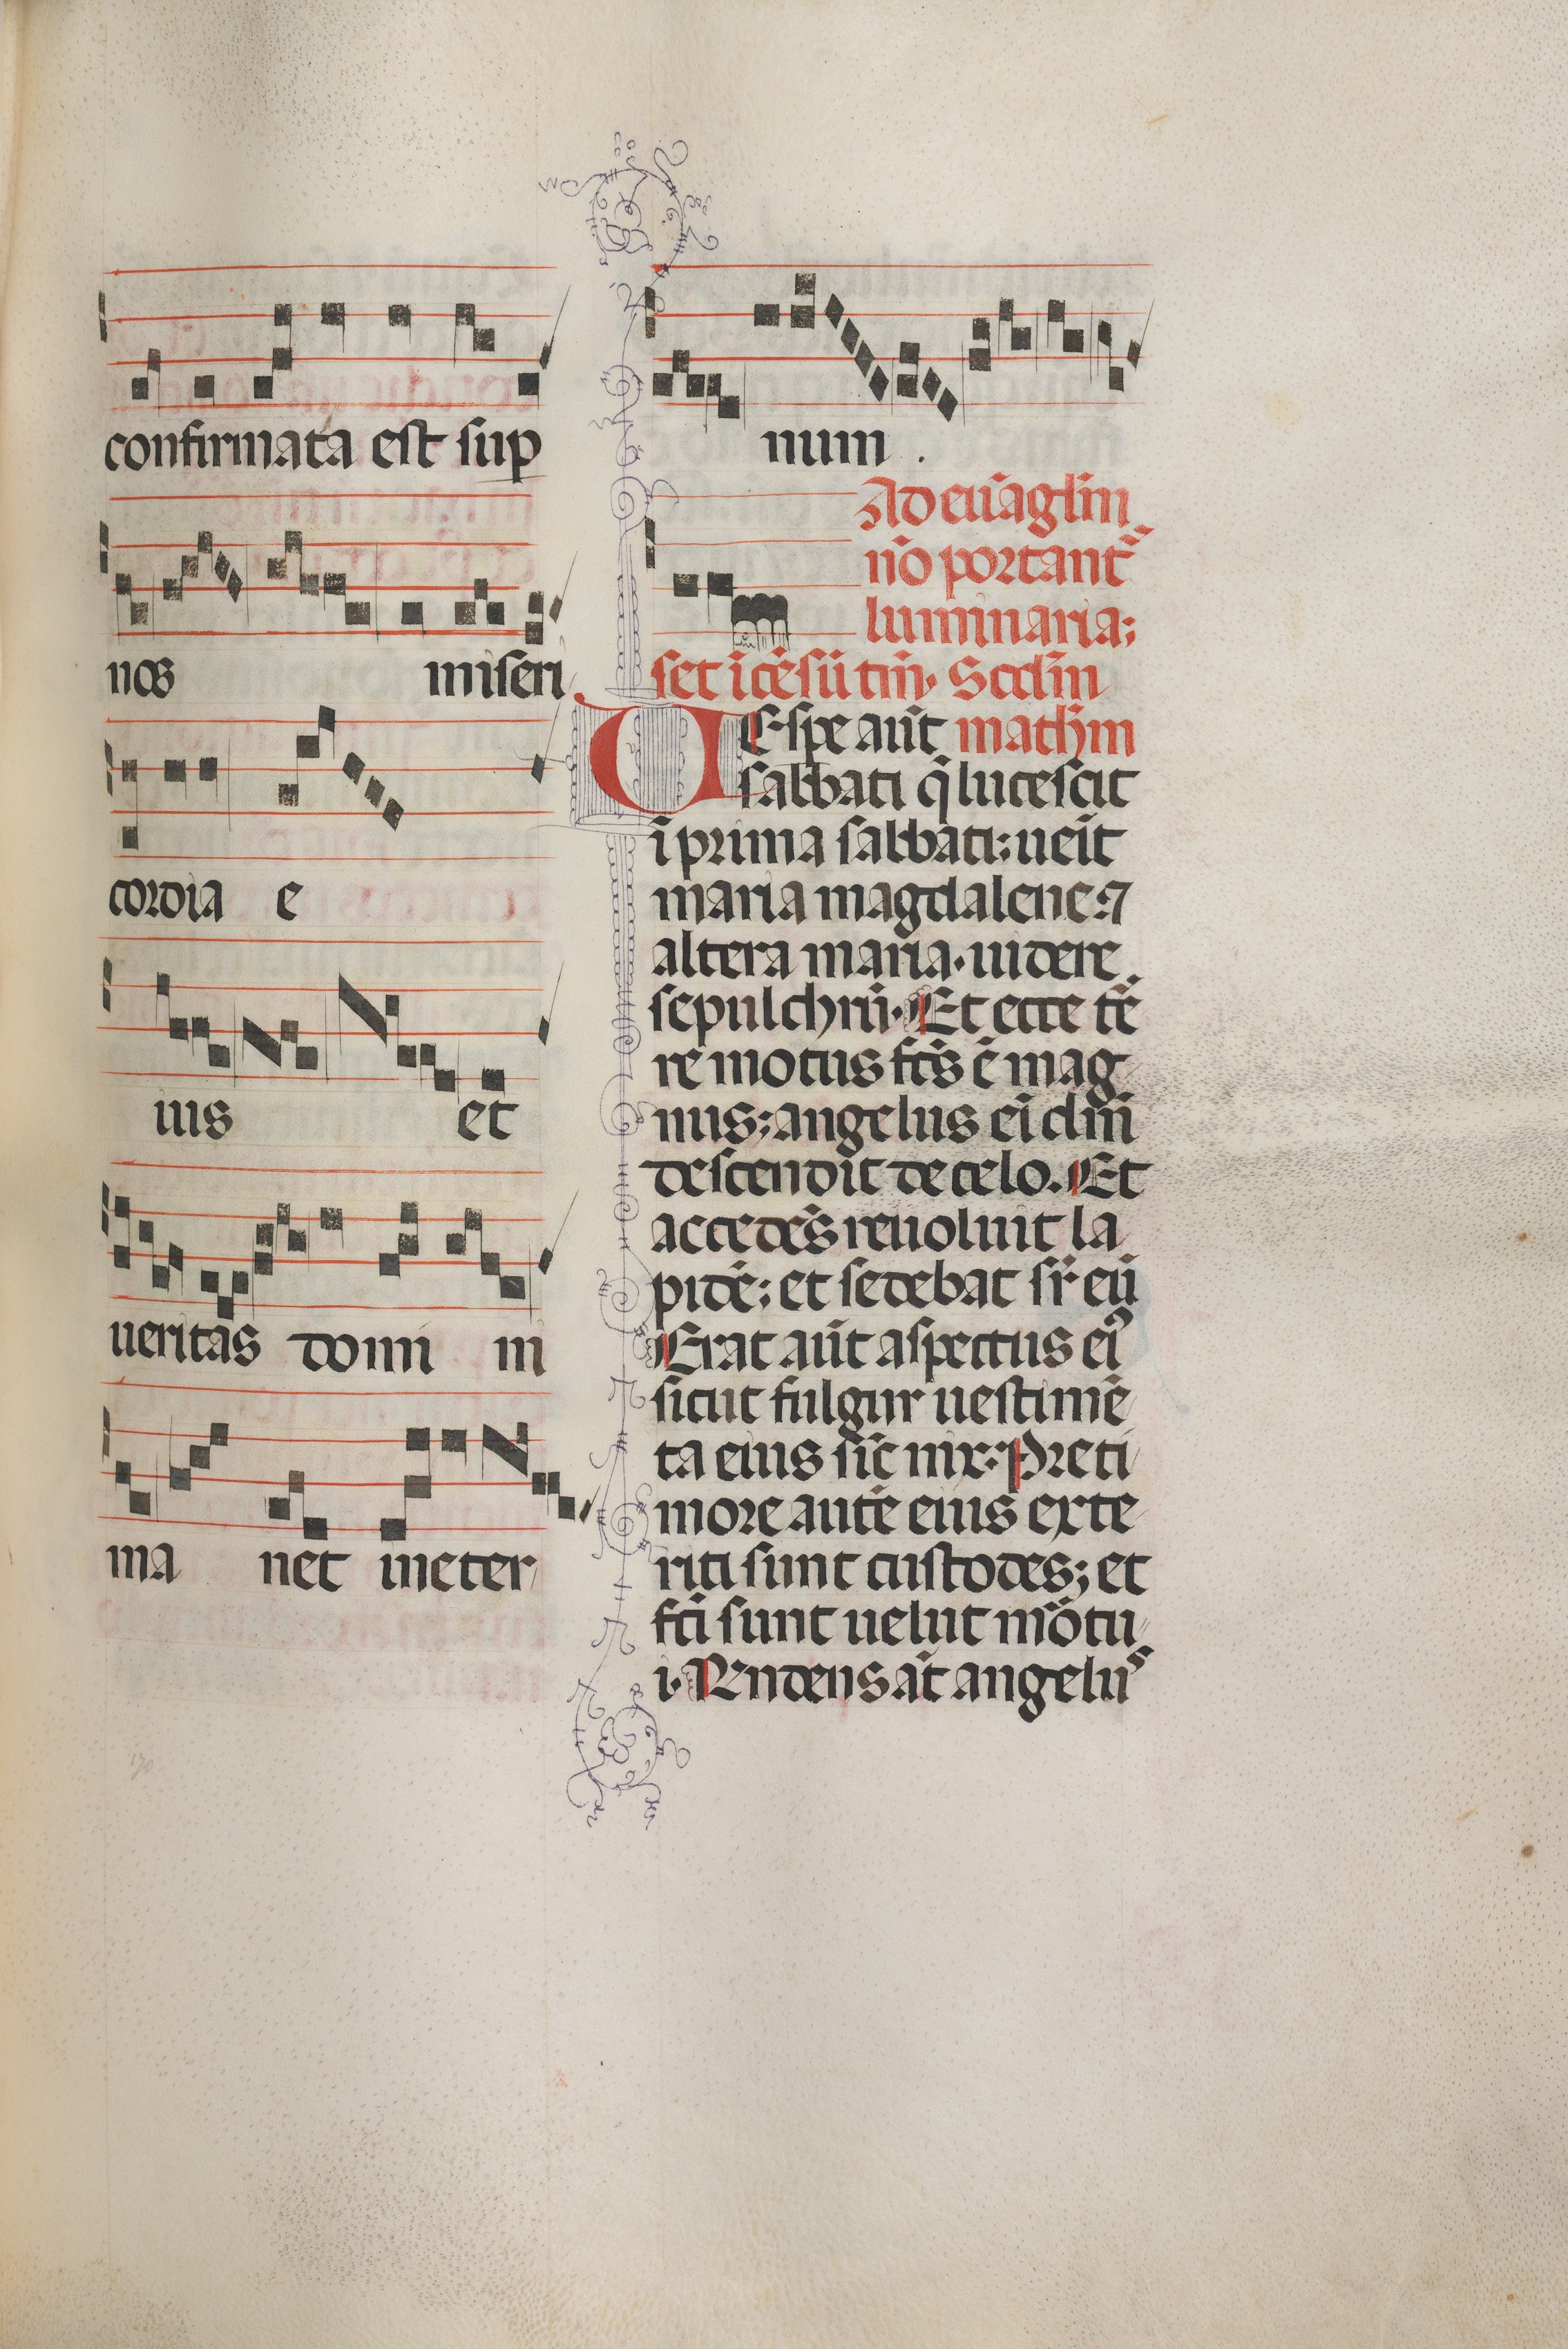 confirmata est sup
nos miseri
cordia e
ius et
ueritas domi ni
ma net ineter
num .
Ad euãgliũ
nõ portant᷑
luminaria;
set ĩcẽsũ tm̃. Scdm̃
VEspe aũt mathm̃
sabbati q̃ lucescit
ĩ prima sabbati; ueĩt
maria magdalene: ⁊
altera maria. uidere
sepulchrũ. Et ecce tẽr
re motus fcũs ẽ mag
nus; angelus eĩ dñi
descendit de celo. Et
accedẽs reuoluit la
pidẽ; et sedebat sr̃ eũ
Erat aũt aspectus eiꝰ
sicut fulgur uestimẽ
ta eius sic̃ nix. Pre ti
more autẽ eius exte
riti sunt custodes; et
fcĩ sunt uelut mõrtu
i. Rñdens aũt angelus
170